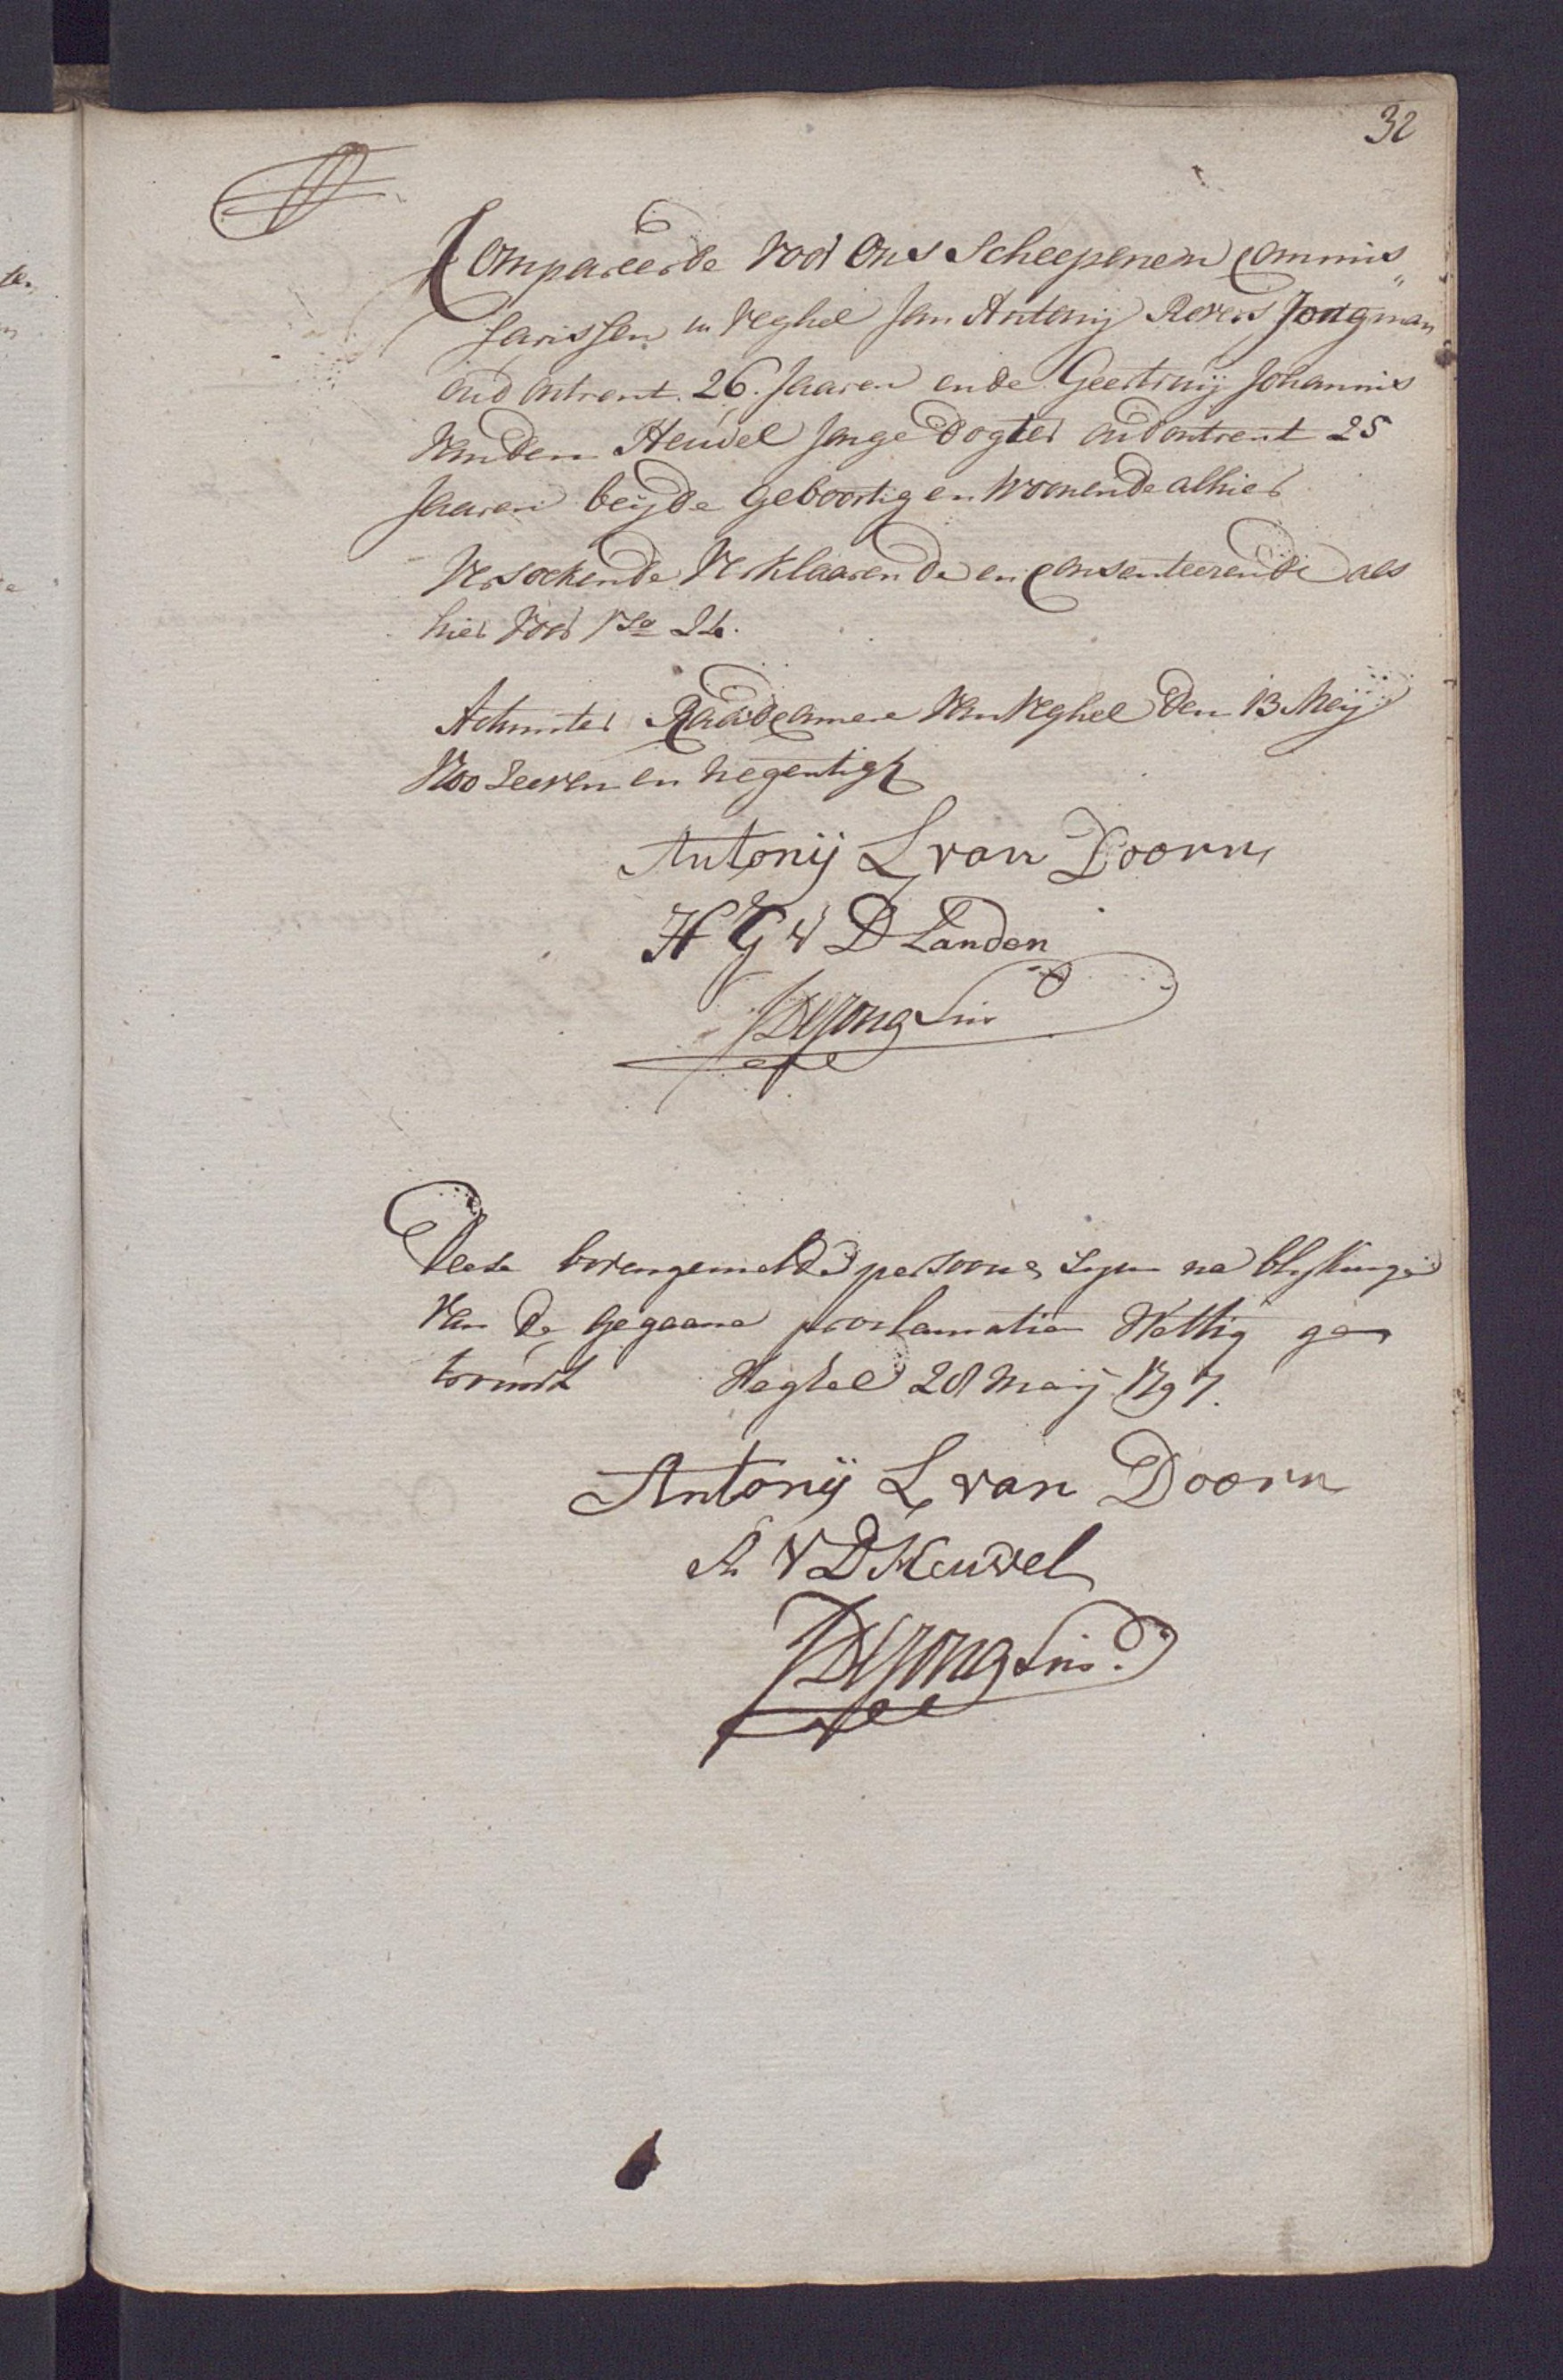 32
Compareerde voor ons Scheepenen Commis„
sarissen in Veghel Jan Antonij Revers Jongman
oud ontrent 26. Jaaren ende Geertruij Johannis
van den Heuvel Jonge Dogter oud ontrent 25
Jaaren beijde geboortig en woonende alhier
Versoekende Verklaarende en Consenteerende als
hier voor
Actum ter Raadcamere van Veghel den 13 Meij
1700 seeven en negentigh
Antonij L van Doorn
H G V D Landen
J De Jong
Deese bovengemelde persoone zijn na blijkinge
van de gegaane proclamatien Wettig ge
trouwt Veghel 28 Meij 1797.
Antonij L van Doorn
A V D Heuvel
J De Jong